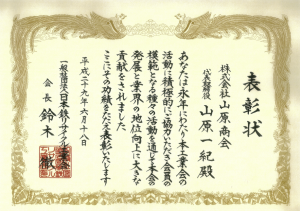 表彰状
株式会社山原商会
代表取締役 山原一紀殿
あなたは永年にわたり本工業会の
活動に積極的にご協力いただき会員の
模範となる種々の活動を通じ本会の
発展と業界の地位向上に大きな
貢献をされました
ここにその功績をたたえ表彰いたします
平成二十九年六月十八日
一般社団法人日本鉄リサイクル工業会
会長 鈴木 徹